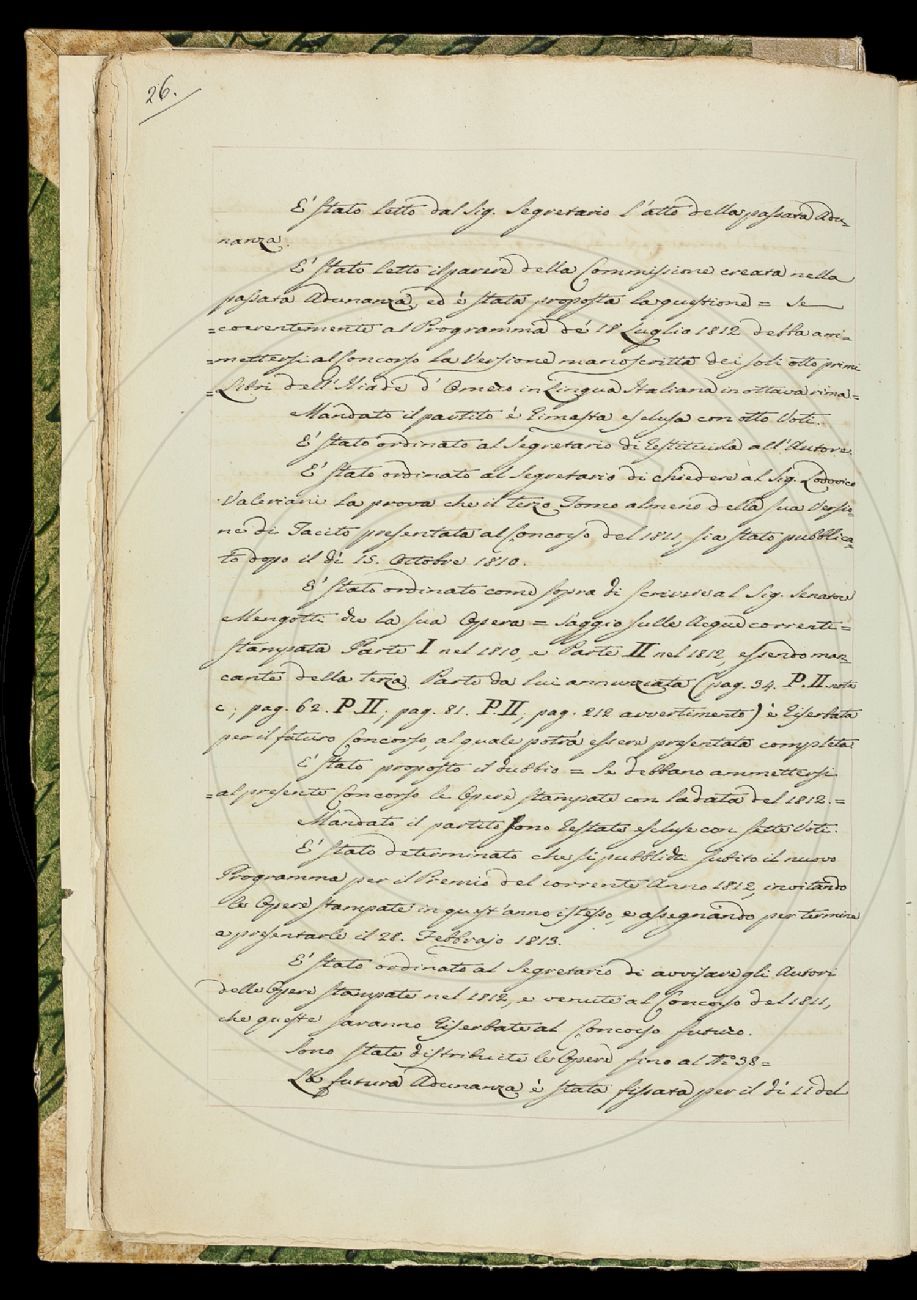 26.
E' stato letto dal Sig. Segretario l'atto della passata Adu-
nanza.
E' stato letto il parere della Commissione creata nella
passata Adunanza, ed è stata proposta la questione = Se
=coerentemente al Programma de' 18 Luglio 1812 debba am-
=mettersi al Concorso la Versione manoscritta dei soli otto primi
=Libri dell'Iliade d'Omero in Lingua Italiana in ottava rima=
Mandato il partito è rimasta esclusa con otto Voti.
E' stato ordinato al Segretario di restituirla all'Autore.
E' stato ordinato al Segretario di chiedere al Sig. Lodovico
Valeriani la prova che il terzo Tomo almeno della sua Versio-
ne di Tacito presentata al Concorso del 1811, sia stato pubblica-
to dopo il dì 15. Ottobre 1810.
E' stato ordinato come sopra di scrivere al Sig. Senatore
Mengotti che la sua Opera = Saggio sulle Acque correnti =
stampata Parte I nel 1810, e Parte II nel 1812, essendo man-
cante della terza Parte da lui annunziata (pag. 34. P. II. nota
c; pag. 62. P. II; pag. 81. P. II, pag. 212 avvertimento) è riserbata
per il futuro Concorso, al quale potrà essere presentata completa
E' stato proposto il dubbio = Se debbano ammettersi
=al presente Concorso le Opere stampate con la data del 1812.=
Mandato il partito sono restate escluse con sette Voti.
E' stato determinato che si pubblichi subito il nuovo
Programma per il Premio del corrente Anno 1812, invitando
le Opere stampate in quest'anno istesso, e assegnando per termine
a presentarle il 28. Febbrajo 1813.
E' stato ordinato al Segretario di avvisare gli Autori
delle Opere stampate nel 1812, e venute al Concorso del 1811,
che queste saranno riserbate al Concorso futuro.
Sono state distribuite le Opere fino al N.° 38=
La futura Adunanza è stata fissata per il dì 11 del